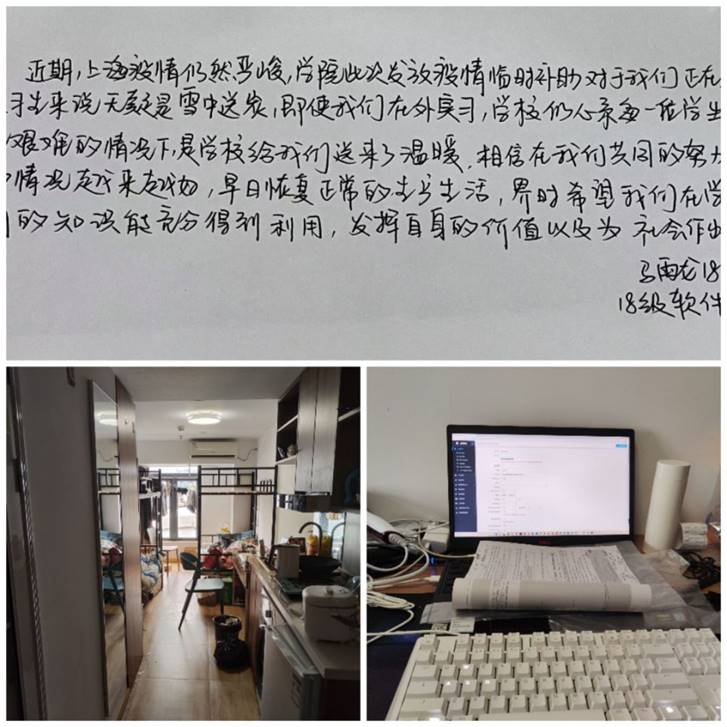 近期,上海疫情仍然严峻,学院此次发放疫情临时补助对于我们正在
习生来说无疑是雪中送炭,即使我们在外实习,学校仍心系每一位学生
艰难的情况下,是学校给我们送来了温暖.相信在我们共同的努力
情况越来越好,早日恢复正常的生产生活,界时希望我们在学
的知识能充分得到利用,发挥自身的价值以及为社会作出
马雨龙18
18级软件